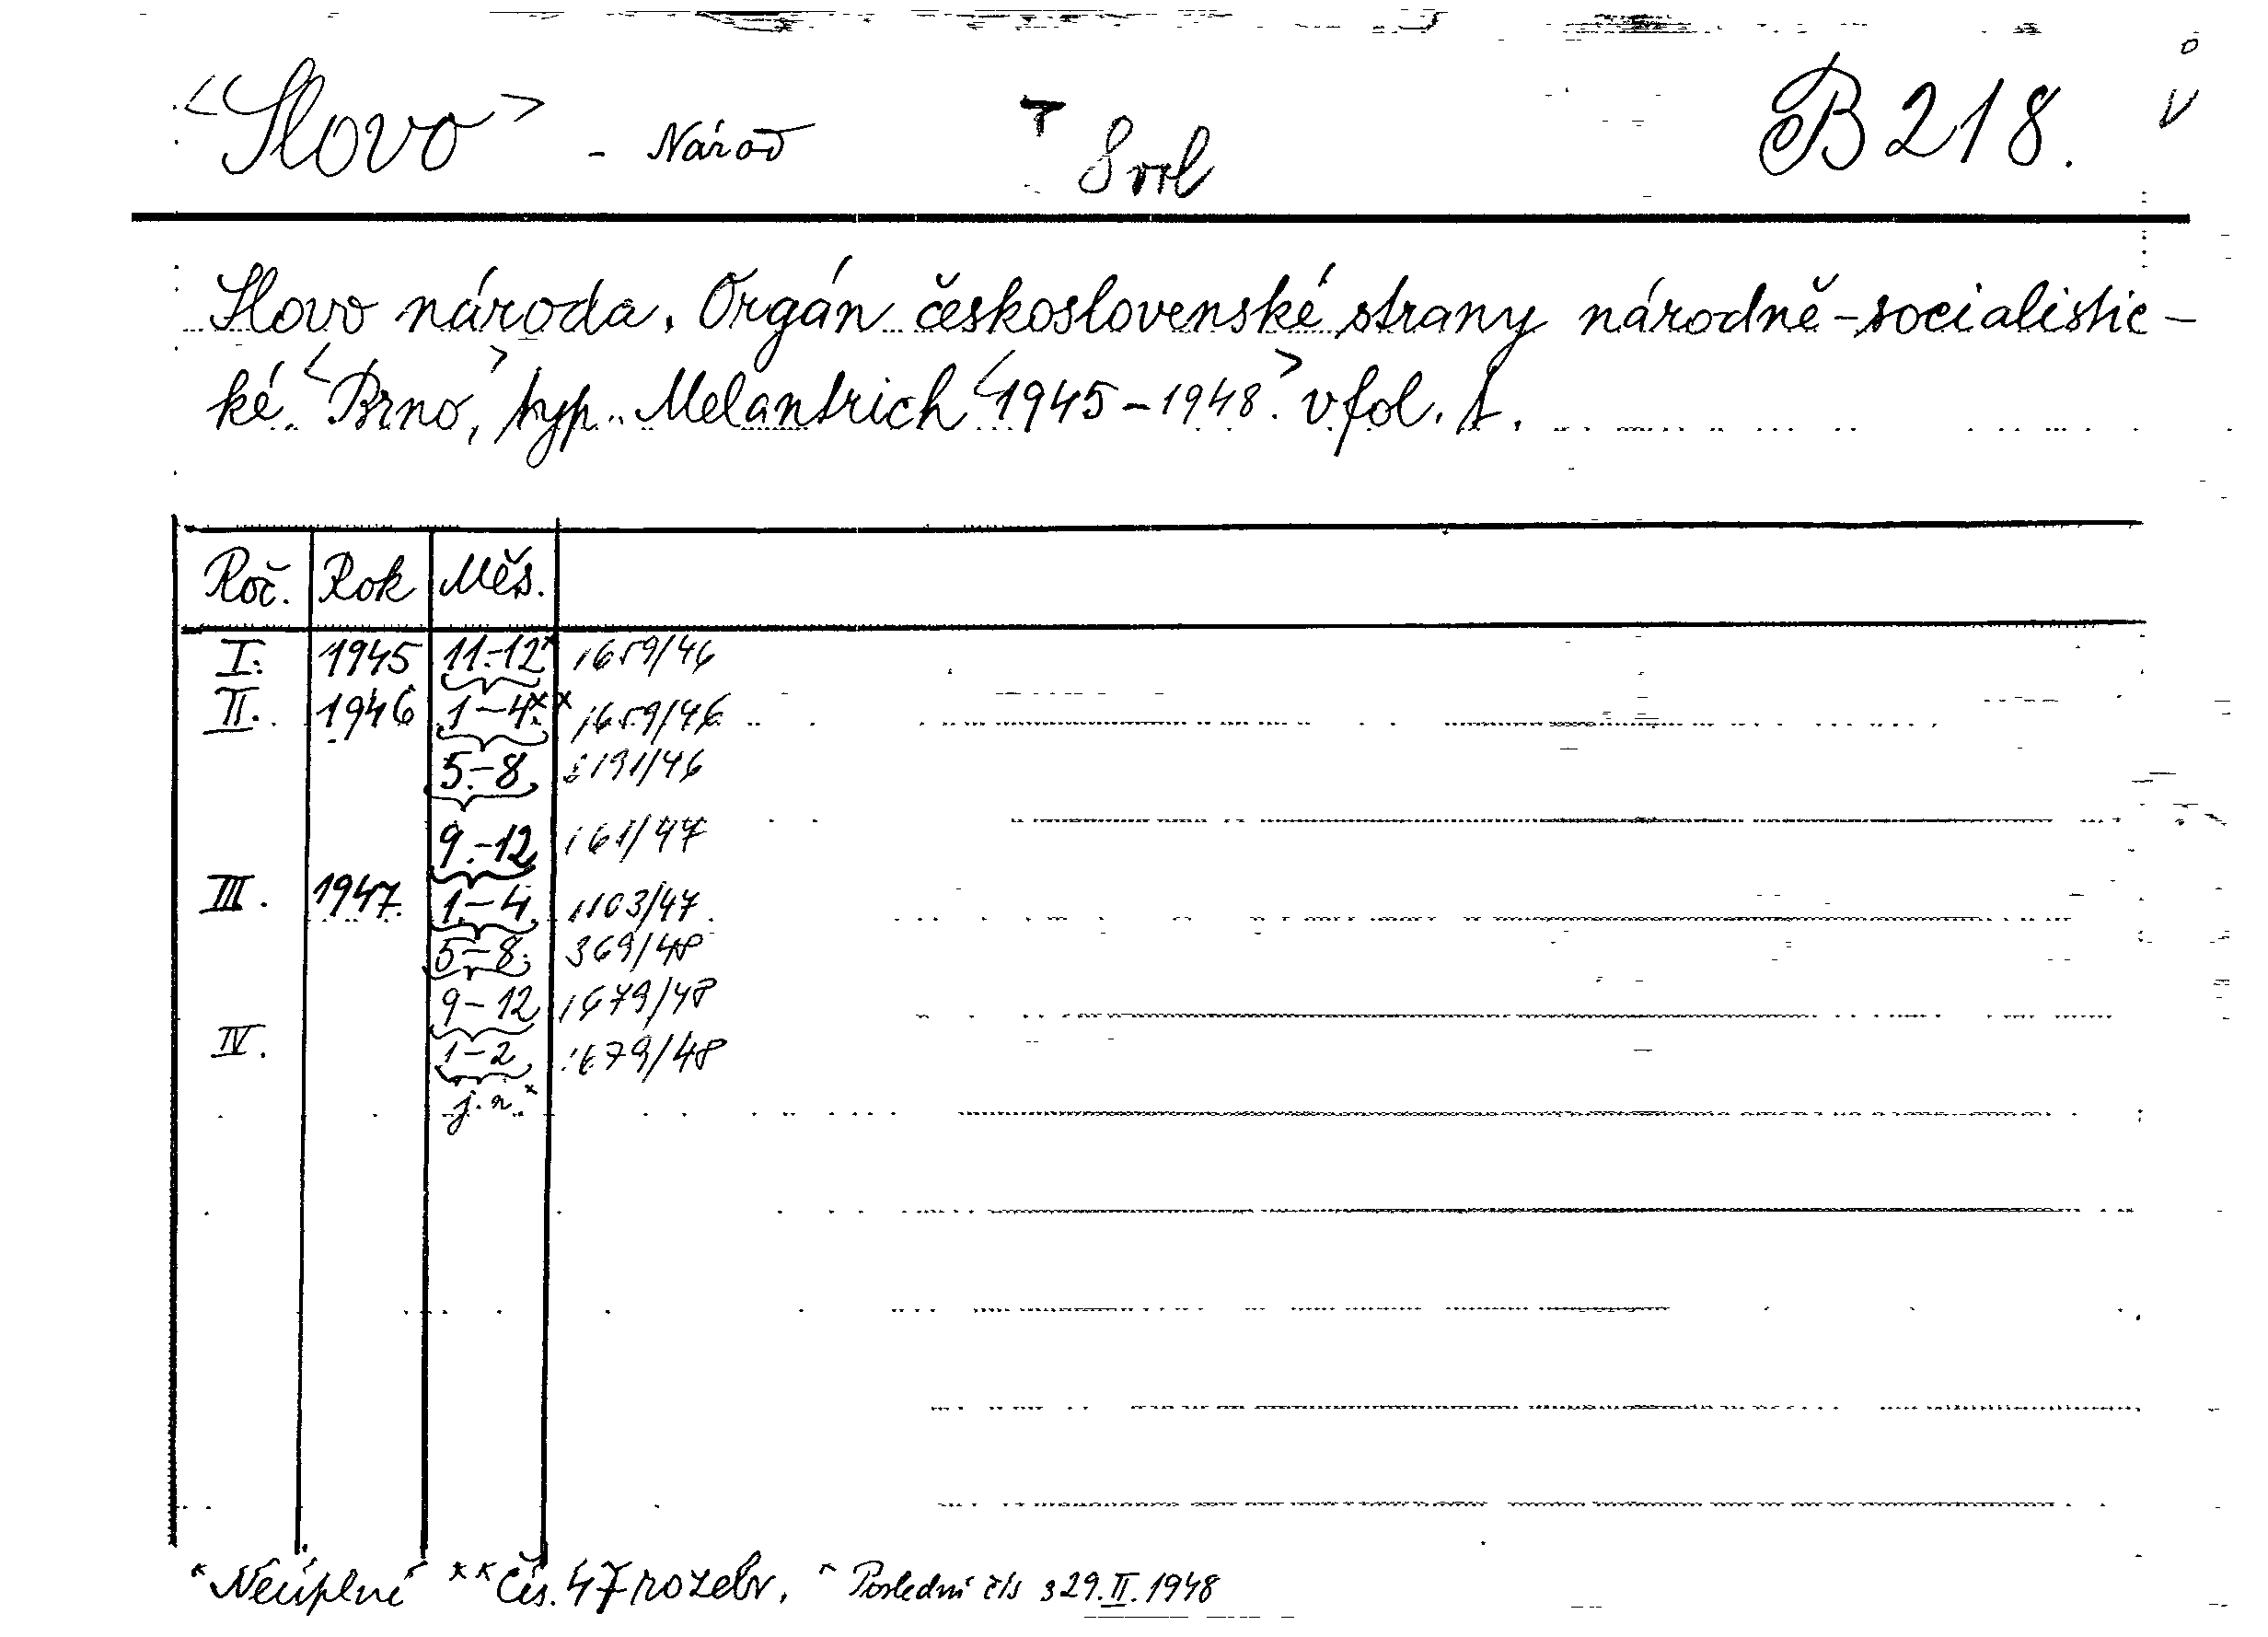 <Slovo> - Národ B 218.
Slovo národa. Orgán československé strany národně-socialistic-
ké. <Brno,> typ. Melantrich <1945-1948.> v fol. t.
Roč. Rok Měs.
I. 1945 11.-12* 1659/46
II. 1946 1-4.** 1659/46
5.-8. 2191/46
9.-12 161/47
III. 1947. 1.-4. 1103/47
5-8. 369/48
9-12 1679/48
IV. 1-2 1679/48
j.n.*
*Neúplné **Čís. 47 rozebr. * Poslední čís z 29.II.1948